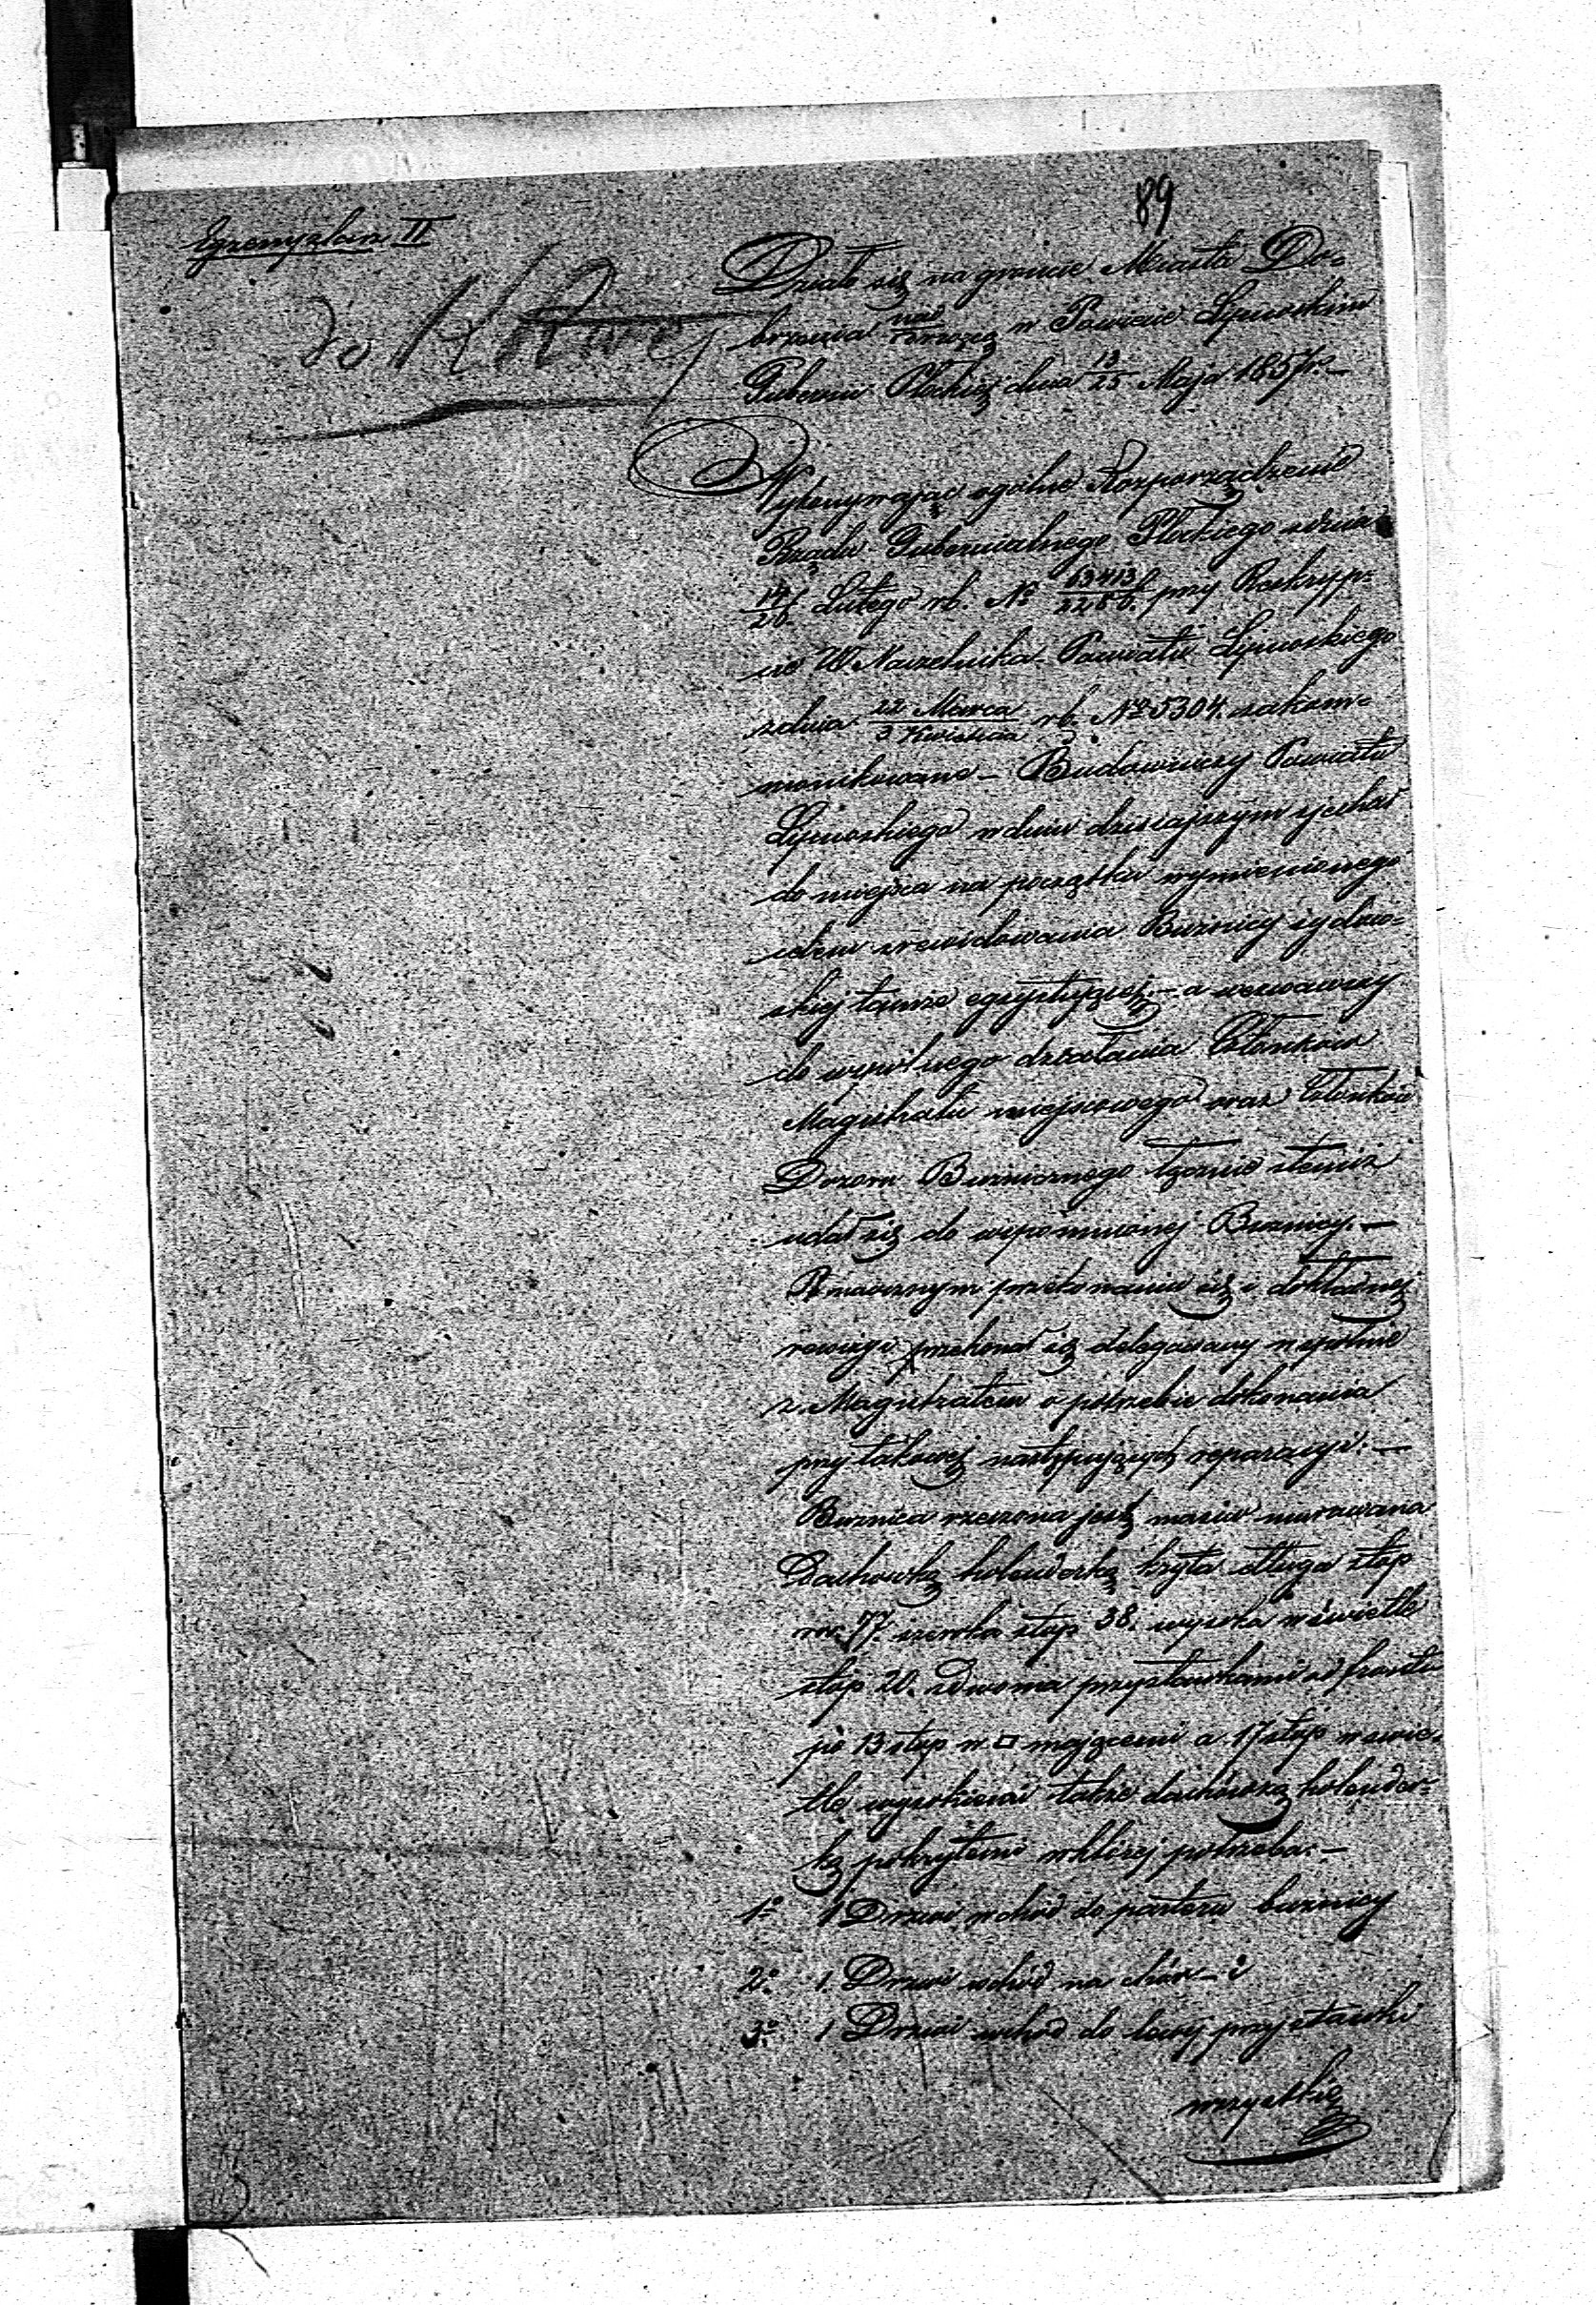 89
Egzemplarz II
do
Działo się na gruncie Miasta Do=
brzynia nad Drwęcą w Powiecie Lipnoskim
Gubernii Płockiej dnia 13/25 Maja 1857 r. –
Wykonywając ogólne Rozporządzenie
Rządu Gubernialnego Płockiego z dnia
Lutego rb. No przy Reskryp=
cie W. Naczelnika Powiatu Lipnoskiego
z dnia 22 Marca/3 Kwietnia rb. No 5304. zakom=
monikowane – Budowniczy Powiatu
Lipnoskiego w dniu dzisiajszym zjechał
do miejsca na początku wymienionego
celem zrewidowania Bużnicy żydow=
skiej tamże egzystującej – a wezwawszy
do wspólnego działania Członków
Magistratu miejscowego oraz Członków
Dozoru Bużnicznego łącznie z temiż
udał się do wspomnionej Bużnicy. –
Po naocznym przekonaniu się i dokładnej
rewizyi przekonał się delegowany wspólnie
z Magistratem o potrzebie dokonania
przy takowej następujących reparacyi: –
Bużnica rzeczona jest masiw murowana
Dachówką holenderką kryta długa stóp
77. szeroka stóp 38. wysoka w świetle
stóp 20. z dwoma przystawkami od frontu
po 13 stóp w □ mającemi a 17 stóp w świe=
tle wysokiemi także dachówką holender=
ką pokrytemi w której potrzeba: –
1o 1 Drzwi wchód do parteru bużnicy
2o 1. Drzwi wchód na chór – i
3o 1 Drzwi wchód do lewej przystawki
wszystkie